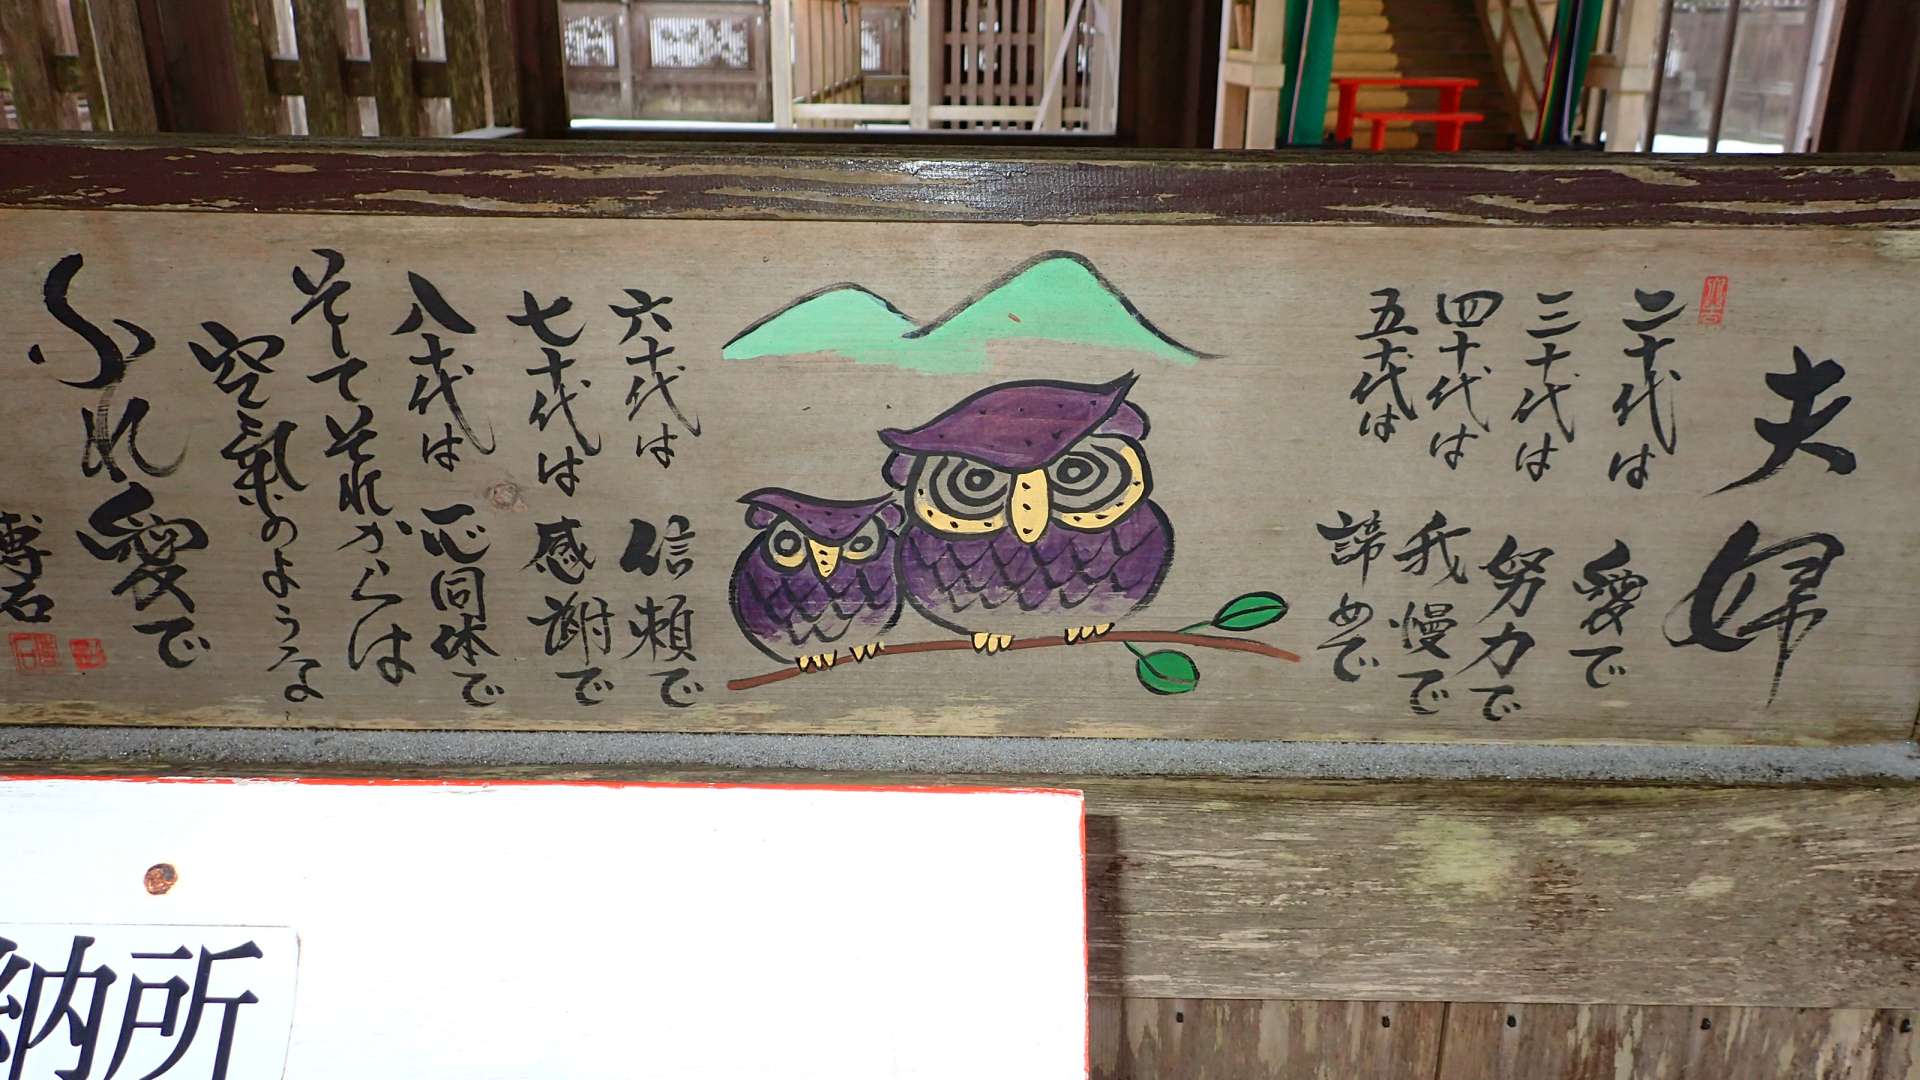 夫婦
二十代は 愛で
三十代は 努力で
四十代は 我慢で
五十代は 諦めで
六十代は 信頼で
七十代は 感謝で
八十代は 一心同体で
そしてそれからは
空氣のような
ふれ愛で
博石
納所